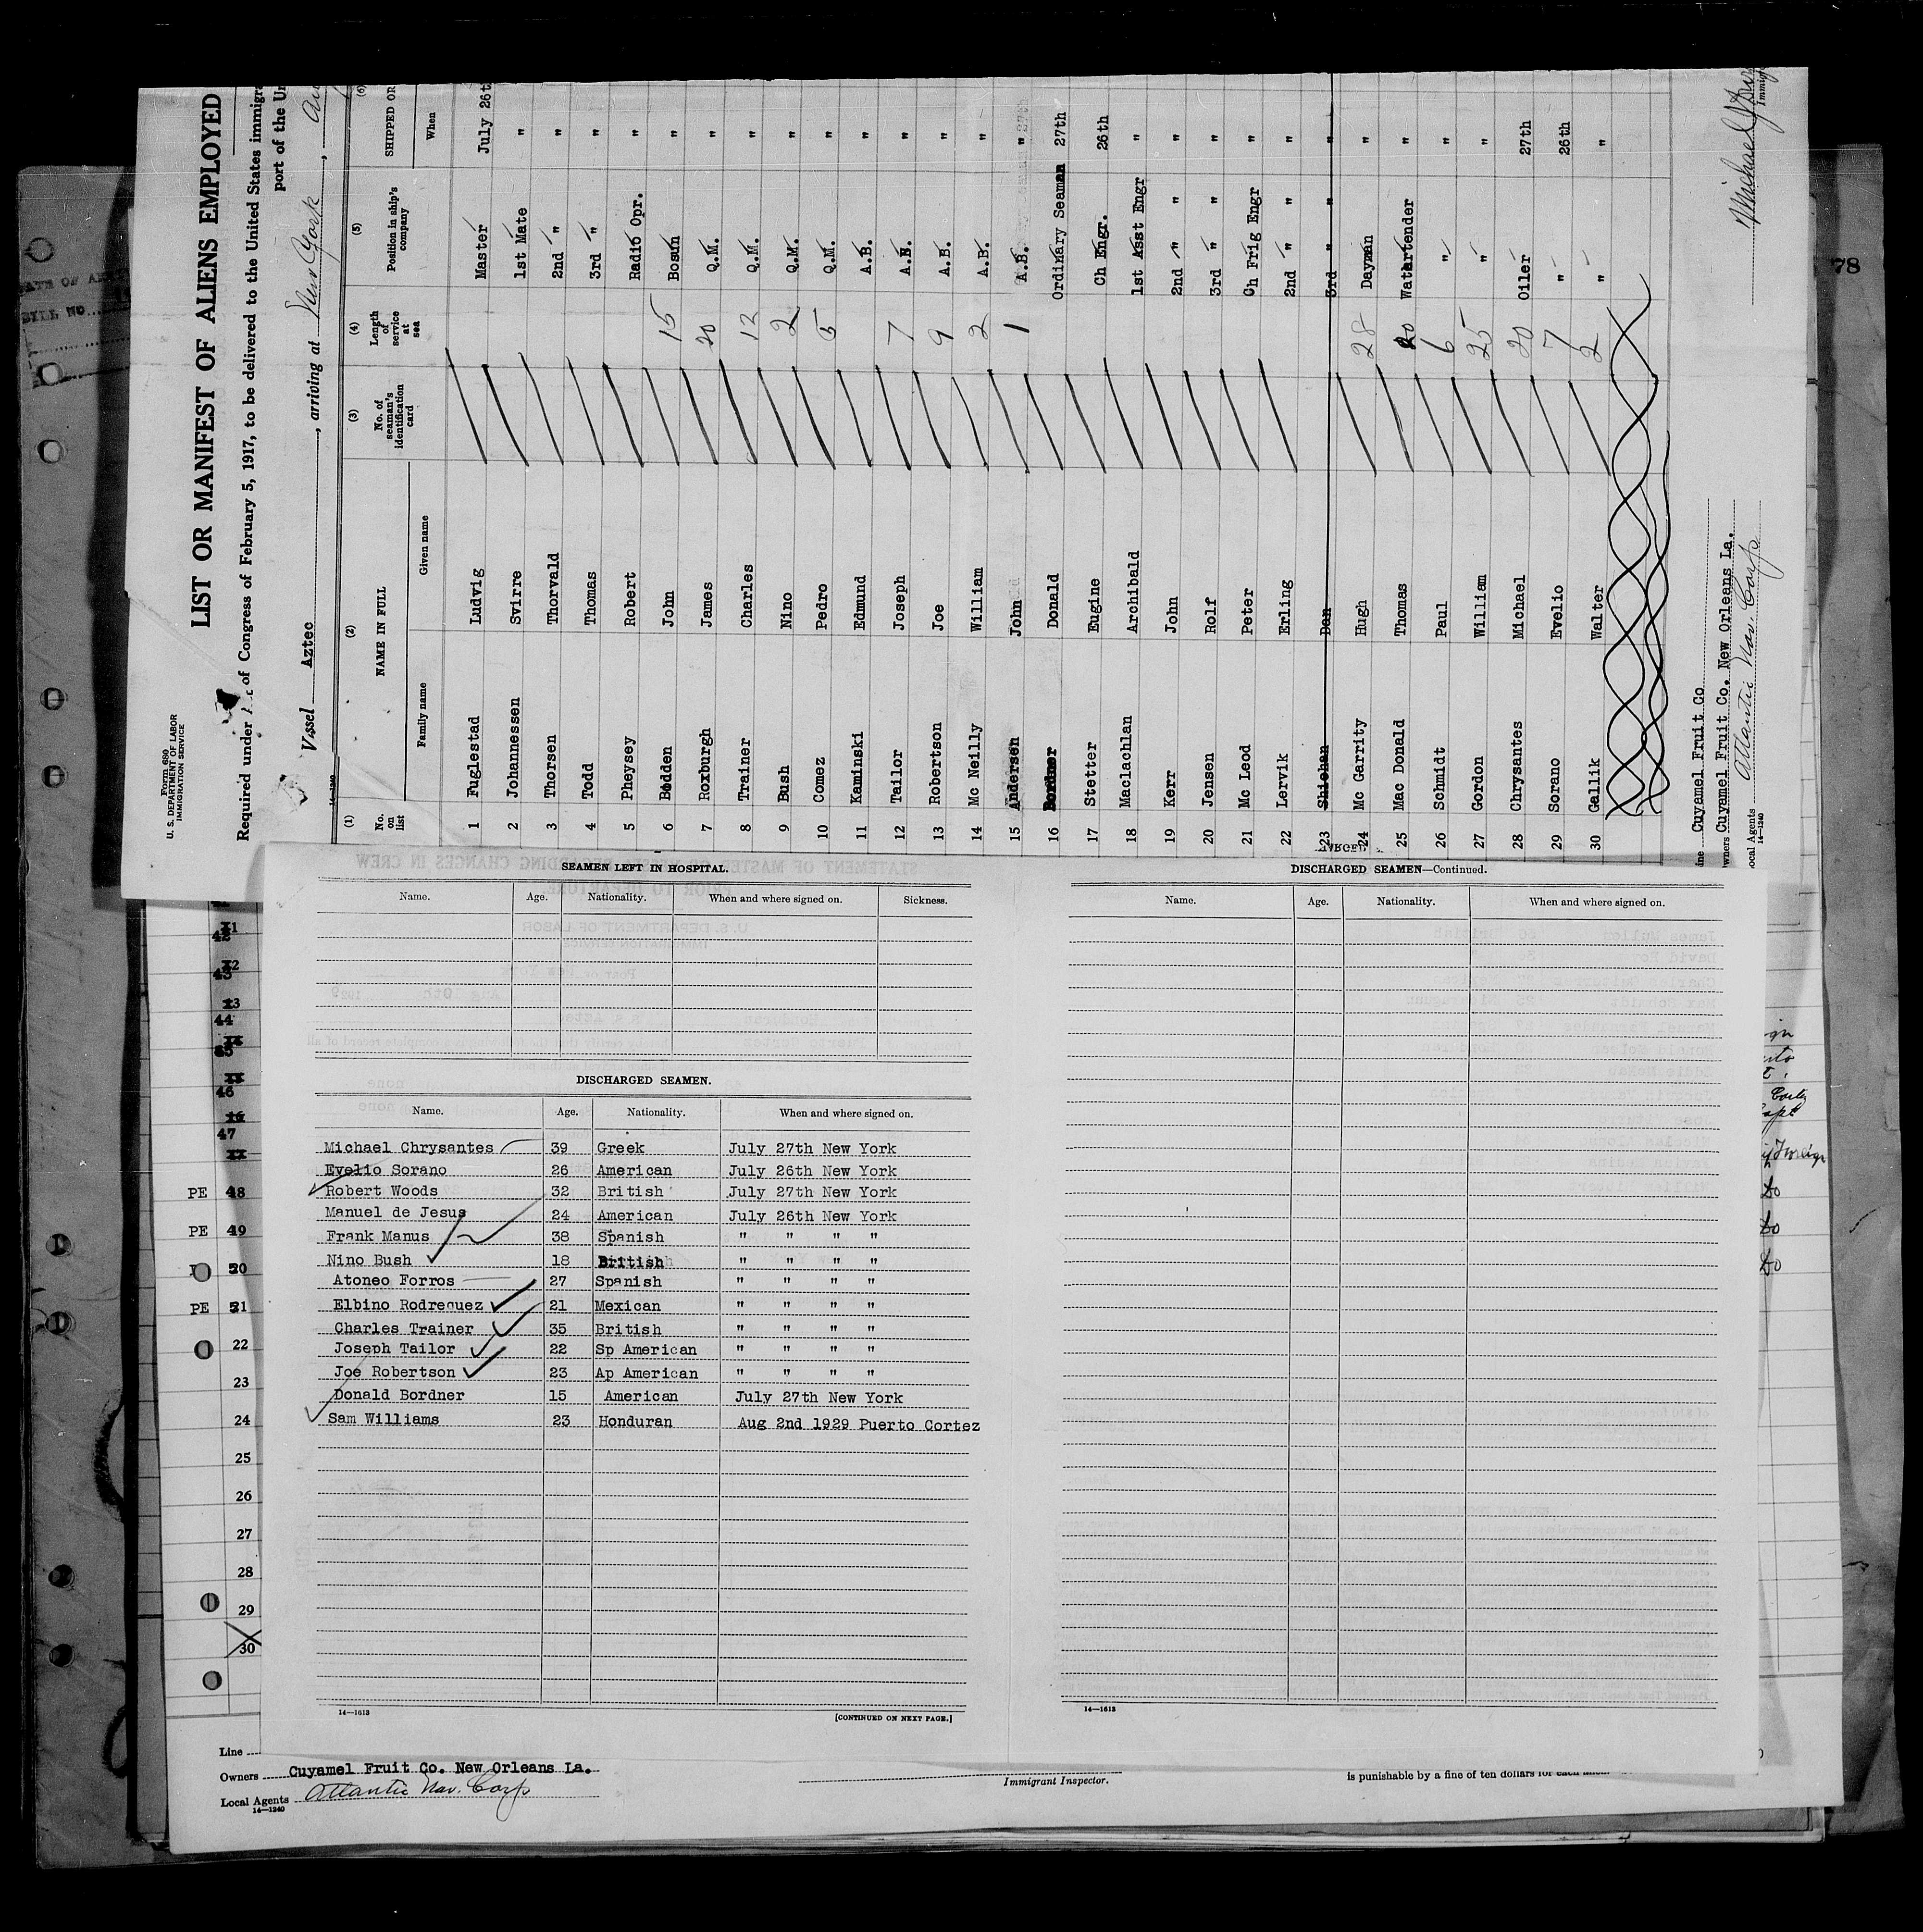 Form 680
U. S. DEPARTMENT OF LABOR
IMMIGRATION SERVICE
LIST OR MANIFEST OF ALIENS EMPLOYED
of Congress of February 5, 1917, to be delivered to the United States immigra
Required under
port of the Un
Vessel Aztec, arriving at New York,
14-1240
(1) (2) (3) (4) (5) (6)
No. on list
NAME IN FULL
Family name Given name
No. of seaman's identification card
Length of service at sea
Position in ship's company
SHIPPED OR
When
1 Fuglestad Ludvig Master July 26t
2 Johannessen Svirre 1st Mate "
3 Thorsen Thorvald 2nd " "
4 Todd Thomas 3rd " "
5 Pheysey Robert Radio Opr. "
6 Bodden John 15 Bosun "
7 Roxburgh James 20 Q.M. "
8 Trainer Charles 12 Q.M. "
9 Bush Nino 2 Q.M. "
10 Comez Pedro 5 Q.M. "
11 Kaminski Edmund A.B. "
12 Tailor Joseph 7 A.B. "
13 Robertson Joe 9 A.B. "
14 Mc Neilly William 2 A.B. "
15 Andersen John 1 A.B. "
16 Bordner Donald Ordinary Seaman 27th
17 Stetter Eugine Ch Engr. 26th
18 Maclachlan Archibald 1st Asst Engr "
19 Kerr John 2nd " " "
20 Jensen Rolf 3rd " " "
21 Mc Leod Peter Ch Frig Engr "
22 Lervik Erling 2nd " " "
23 Shiehan Dan 3rd " " "
24 Mc Garrity Hugh 28 Dayman "
25 Mac Donald Thomas 20 Watertender "
26 Schmidt Paul 6 " "
27 Gordon William 25 " "
28 Chrysantes Michael 20 Oiler 27th
29 Sorano Evelio 7 " 26th
30 Gallik Walter 2 " "
ine Cuyamel Fruit Co
wners Cuyamel Fruit Co. New Orleans La.
ocal Agents Atlantic Nav. Corp
14-1240
Michael
Immig
78
SEAMEN LEFT IN HOSPITAL.
Name. Age. Nationality. When and where signed on. Sickness.
DISCHARGED SEAMEN.
Name. Age. Nationality. When and where signed on.
Michael Chrysantes 39 Greek July 27th New York
Evelio Sorano 26 American July 26th New York
Robert Woods 32 British July 27th New York
Manuel de Jesus 24 American July 26th New York
Frank Manus 38 Spanish " " " "
Nino Bush 18 British " " " "
Atoneo Forros 27 Spanish " " " "
Elbino Rodrequez 21 Mexican " " " "
Charles Trainer 35 British " " " "
Joseph Tailor 22 Sp American " " " "
Joe Robertson 23 Ap American " " " "
Donald Bordner 15 American July 27th New York
Sam Williams 23 Honduran Aug 2nd 1929 Puerto Cortez
14-1613
[CONTINUED ON NEXT PAGE.]
DISCHARGED SEAMEN—Continued.
Name. Age. Nationality. When and where signed on.
14-1613
42
43
44
46
47
PE 48
PE 49
PE 21
22
23
24
25
26
27
28
29
30
Do
Do
Do
Line
Owners Cuyamel Fruit Co. New Orleans La.
Local Agents Atlantic Nav. Corp
14-1240
Immigrant Inspector.
is punishable by a fine of ten dollars for each